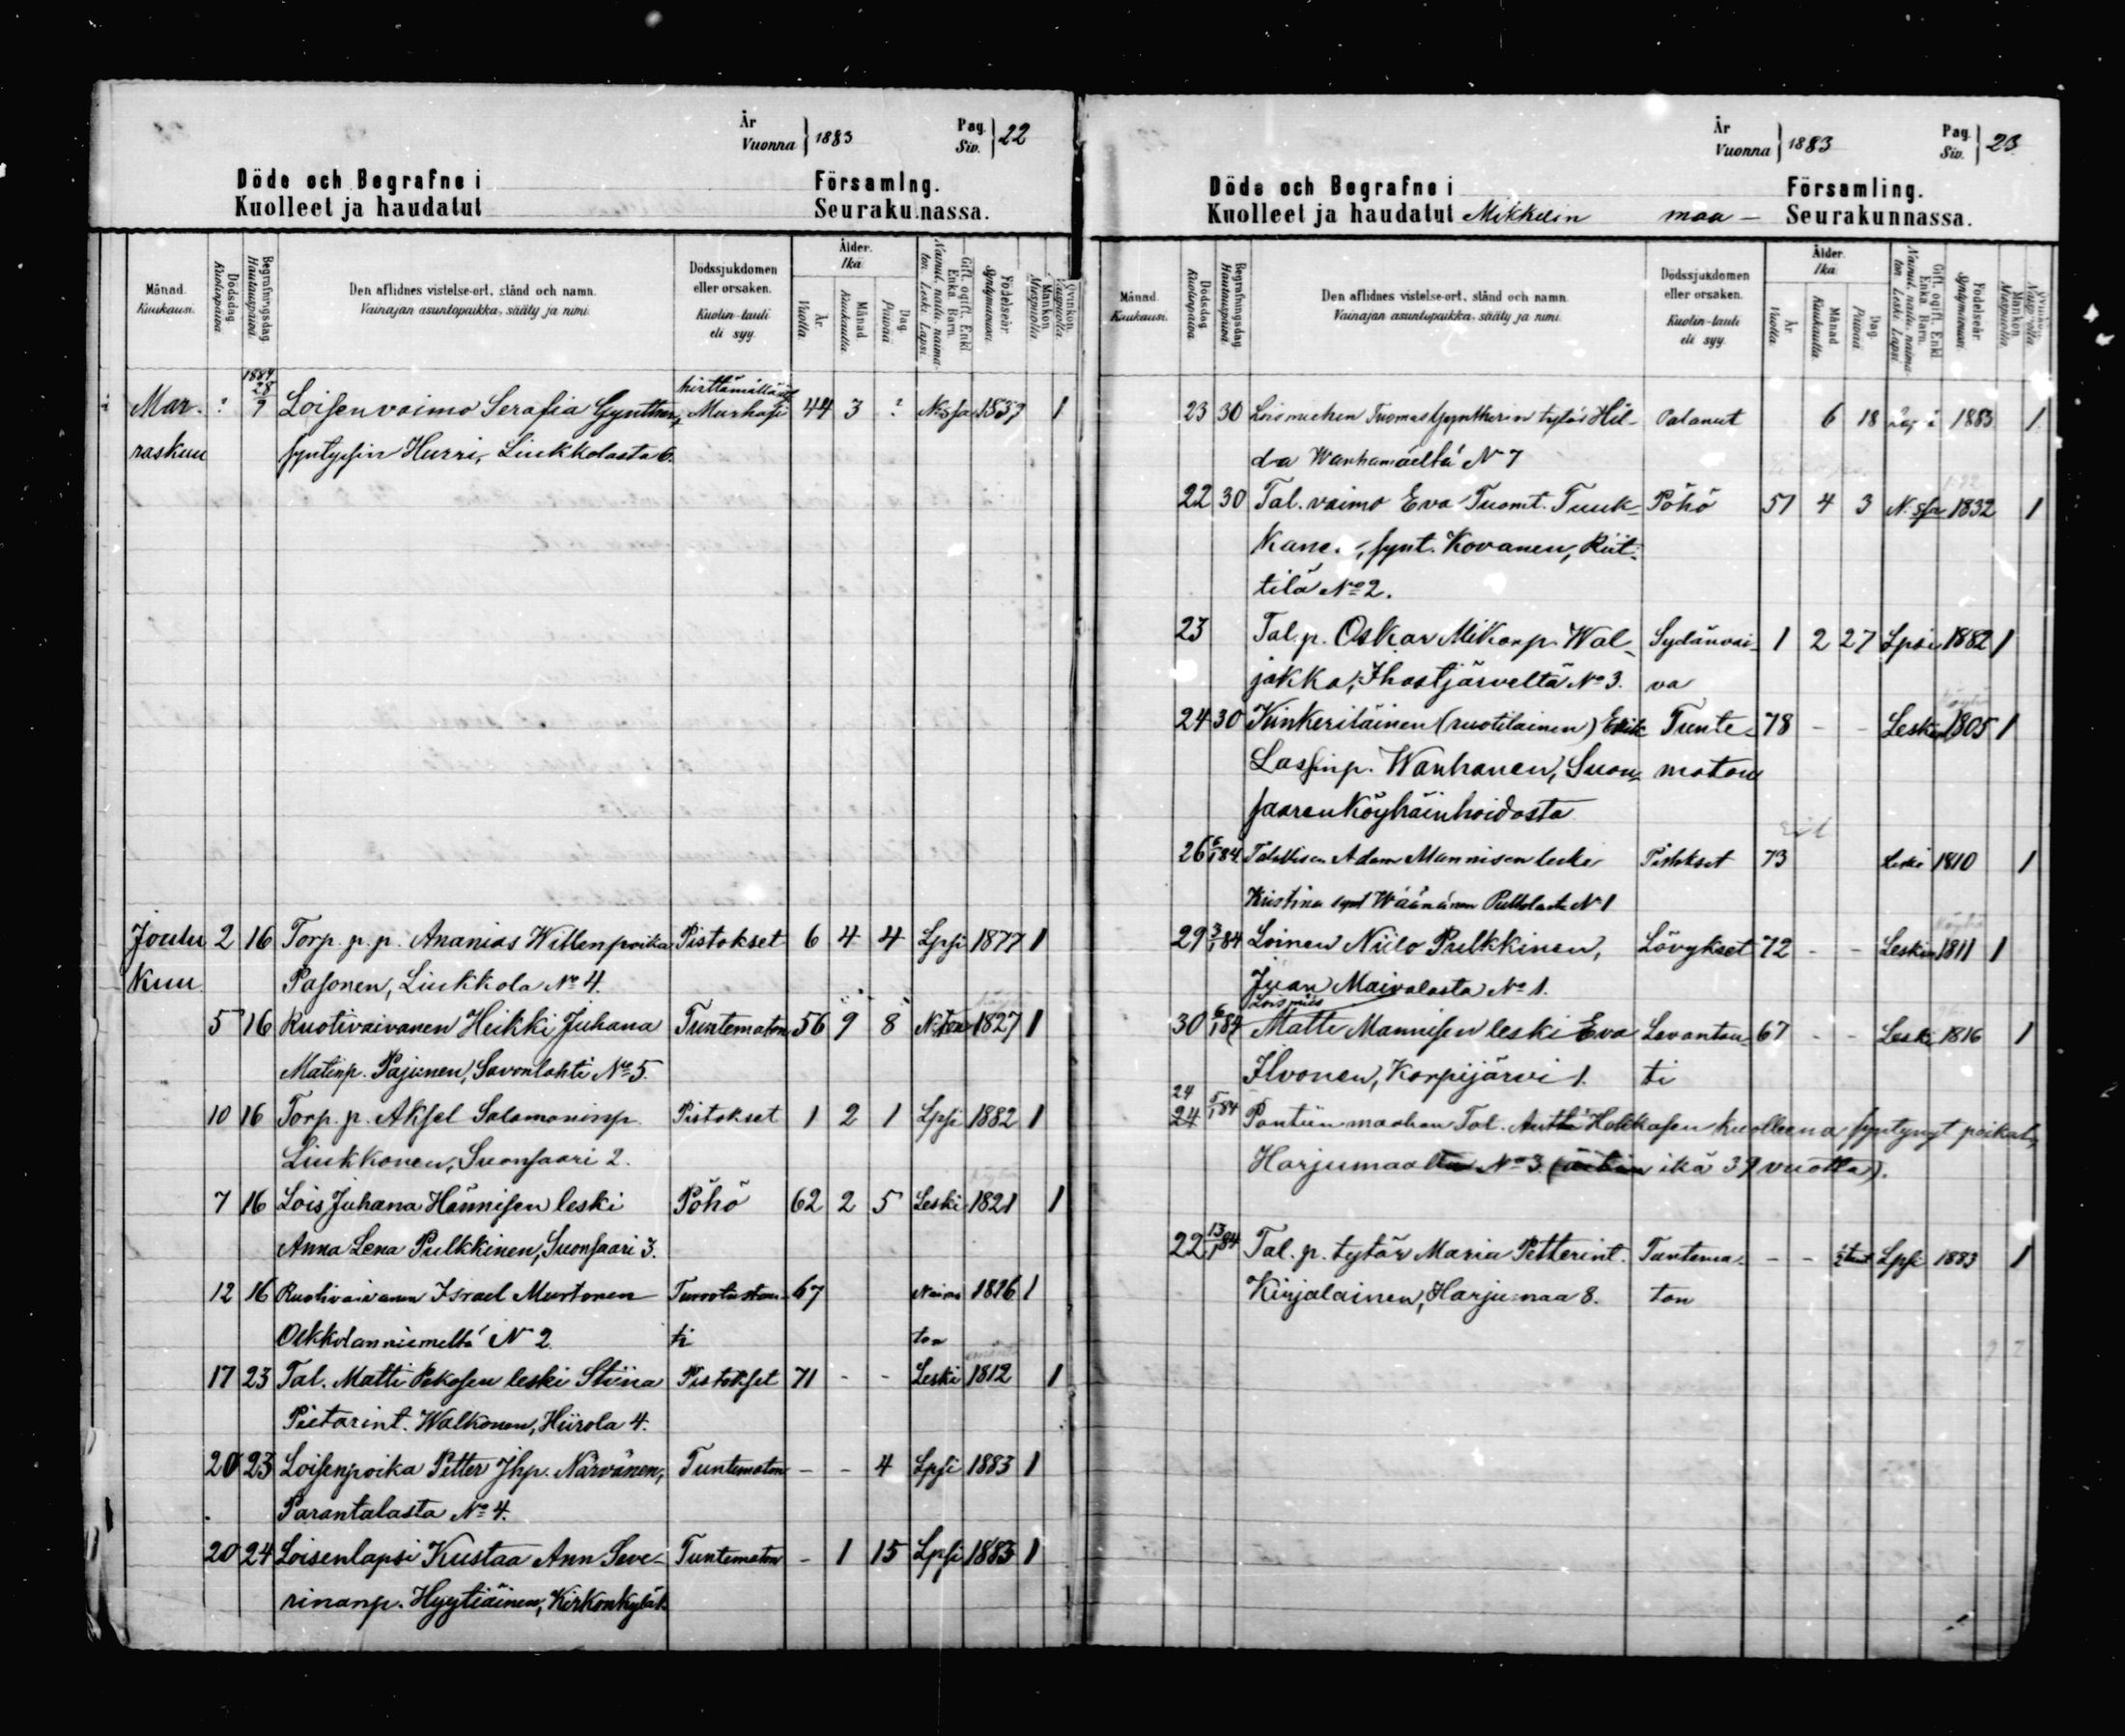 År
Vuonna } 1883
Pag.
Siv. } 22
Döde och Begrafne i Församlng.
Kuolleet ja haudatut Seurakunnassa.
Månad. Kuukausi.
Dödsdag. Kuolinpäivä.
Begrafningsdag. Hautauspäivä.
Den aflidnes vistelse-ort, stånd och namn.
Vainajan asuntopaikka, sääty ja nimi.
Dödssjukdomen eller orsaken.
Kuolin-tauti eli syy.
Ålder. Ikä.
År. Vuotta.
Månad. Kuukautta.
Dag. Päivää.
Gift, ogift, Enkl. Enka. Barn.
Nainut, naitu, naimaton. Leski. Lapsi.
Födelseår. Syntymävuosi.
Mankön. Miespuolia.
Qvinkön. Vaimopuolia.
1884 hirttämällä
Mar. ? 28/9 Loisen vaimo Serafia Gynther, Murhasi 44 3 ? 1837 1
raskuu syntysin Hurri, Liukkolasta 6.
Joulu 2 16 Torp. p. p. Ananias Willenpoika Pistokset 6 4 4 Lpsi 1877 1
kuu Pasonen, Liukkola No 4.
5 16 Ruotivaivanen Heikki Juhana Tuntematon 56 9 8 1827 1
Matinp. Pajunen, Savonlahti No 5.
10 16 Torp. p. Aksel Salomoninp. Pistokset 1 2 1 Lpsi 1882 1
Liukkonen, Suonsaari 2.
7 16 Lois Juhana Hännisen leski Pöhö 62 2 5 Leski 1821 1
Anna Lena Pulkkinen, Suonsaari 3.
12 16 Ruotivaivanen Israel Murtonen 67 Naima 1816 1
N 2. ti ton
17 23 Tal. Matti Pekosen leski Stiina Pistokset 71 - - Leski 1812 1
Pietarint. Walkonen, Hiirola 4.
20 23 Loisenpoika Petter Jhp. Närvänen, Tuntematon - - 4 Lpsi 1883 1
Parantalasta No 4.
20 24 Loisenlapsi Kustaa Ann Seve- Tuntematon - 1 15 Lpsi 1883 1
rinanp. Hyytiäinen, Kirkonkylä 1.
År
Vuonna } 1883
Pag.
Siv. } 23
Döde och Begrafne i Församling.
Kuolleet ja haudatut Mikkelin maa- Seurakunnassa.
Månad. Kuukausi.
Dödsdag. Kuolinpäivä.
Begrafningsdag. Hautauspäivä.
Den aflidnes vistelse-ort, stånd och namn.
Vainajan asuntopaikka, sääty ja nimi.
Dödssjukdomen eller orsaken.
Kuolin-tauti eli syy.
Ålder. Ikä.
År. Vuotta.
Månad. Kuukautta.
Dag. Päivää.
Gift, ogift, Enkl. Enka. Barn.
Nainut, naitu, naimaton. Leski. Lapsi.
Födelseår. Syntymävuosi.
Mankön. Miespuolia.
Qvinkön. Vaimopuolia.
23 30 Loismiehen Tuomas Gyntherin tytär Hil- Palanut 6 18 1883 1
da Wanhamäeltä N 7
22 30 Tal. vaimo Eva Tuomt. Tuuk- Pöhö 51 4 3 N:ssa 1832 1
kane, synt. Kovanen, Riit-
tilä No 2.
23 Tal. p. Oskar Mikonp. Wal- Sydänvai- 1 2 27 Lpsi 1882 1
jakka, Ihastjärveltä No 3. va
24 30 Kinkeriläinen (ruotilainen) Erik Tunte- 78 - - Leski 1805 1
Lassinp. Wanhanen, Suon- maton
saaren köyhäinhoidosta
26 6/1 84 Talollisen Adam Mannisen leski Pistokset 73 Leski 1810 1
Kristina synt Wäänänen Pulkolasta N 1
29 3/1 84 Loinen Niilo Pulkkinen, Lövykset 72 - - Leski 1811 1
Juan Maivalasta No 1.
Loismies
30 6/1 84 Matti Mannisen leski Eva Lavantau- 67 - - Leski 1816 1
Ilvonen, Korpijärvi 1. ti
24
24 5/1 84 Pantiin maahan Tal. Antti Hokkasen kuolleena syntynyt poikal.,
Harjumaalta No 3. (äitin ikä 39 vuotta).
22 13/1 84 Tal. p. tytär Maria Petterint. Tuntema- - - Lpsi 1883 1
Kinjalainen, Harjumaa 8. ton